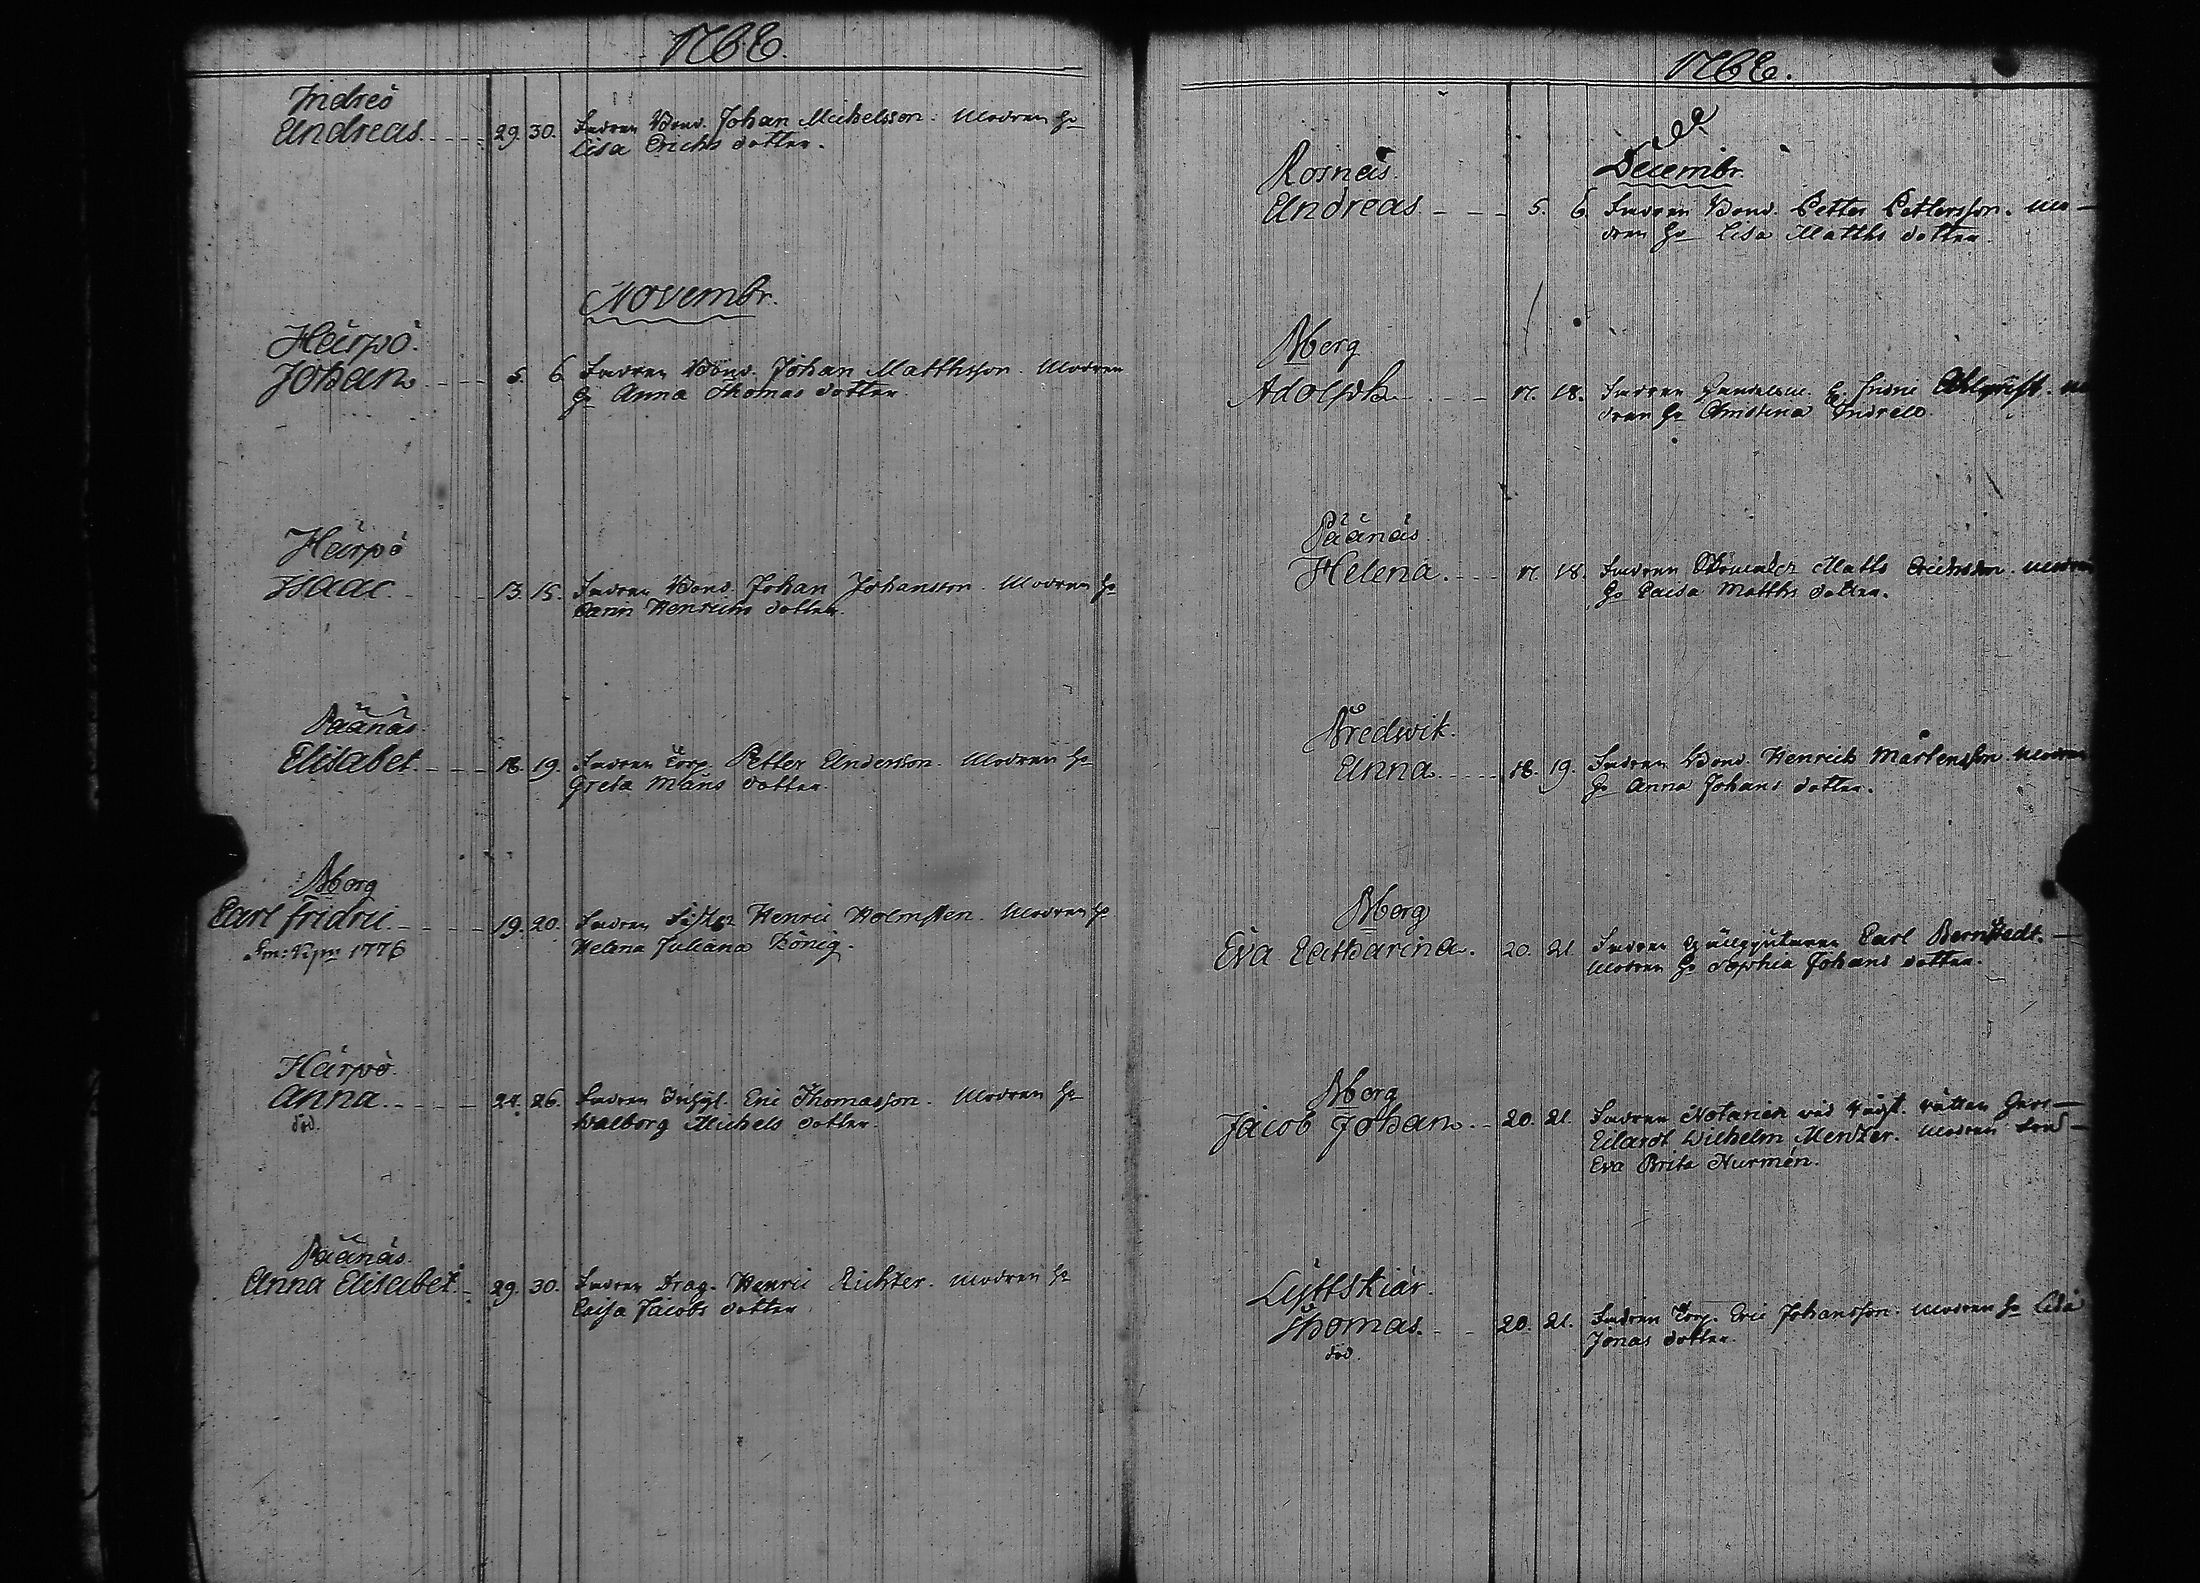 1762.
Indreö
Andreas 29. 30. Fadren Bond. Johan Michelsson. Modren H:o
Lisa Erichs dotter.
Novembr.
Härpö.
Johan 5. 6. Fadren Bond. Johan Matthsson. Modren
H:o Anna Thomas dotter.
Härpö
Isaac 13. 15. Fadren Bond. Johan Johansson. Modren H:o
Carin Henrichs dotter.
Påånäs.
Elisabet. 18. 19. Fadren Torp. Petter Andersson. Modren H:o
Greta Måns dotter.
Bborg
Carl Fridric. 19. 20. Fadren Henric Holmsten. Modren H:o
1776 Helena Juliana König.
Härpö.
Anna. 24. 26. Fadren Eric Thomasson. Modren H:o
död. Walborg Michels dotter.
Påånäs.
Anna Elisabet. 29. 30. Fadren Drag. Henric Richter. Modren H:o
Caisa Jacobs dotter.
1762.
Decembr.
Rosnäs.
Andreas 5. 6. Fadren Bond. Petter Pettersson. Mo-
dren H:o Lisa Matths dotter.
Bborg
Adolph 17. 18. Fadren
dren H:o Christina
Påånäs.
Helena. 17. 18. Fadren Matts Erichsson. Modren
H:o Caisa Matths dotter.
Bredwik.
Anna 18. 19. Fadren Bond. Henrich Mårtensson. Modren
H:o Anna Johans dotter.
Bborg
Eva Catharina. 20. 21. Fadren Carl Bernstedt.
Modren H:o Sophia Johans dotter.
Bborg
Jacob Johan. 20. 21. Fadren Notarien wid rätten Herr
Wilhelm Mentzer. Modren
Eva Brita Nurmén.
Lyttskiär.
Thomas. 20. 21. Fadren Torp. Eric Johansson. Modren H:o Lisa
död. Jonas dotter.